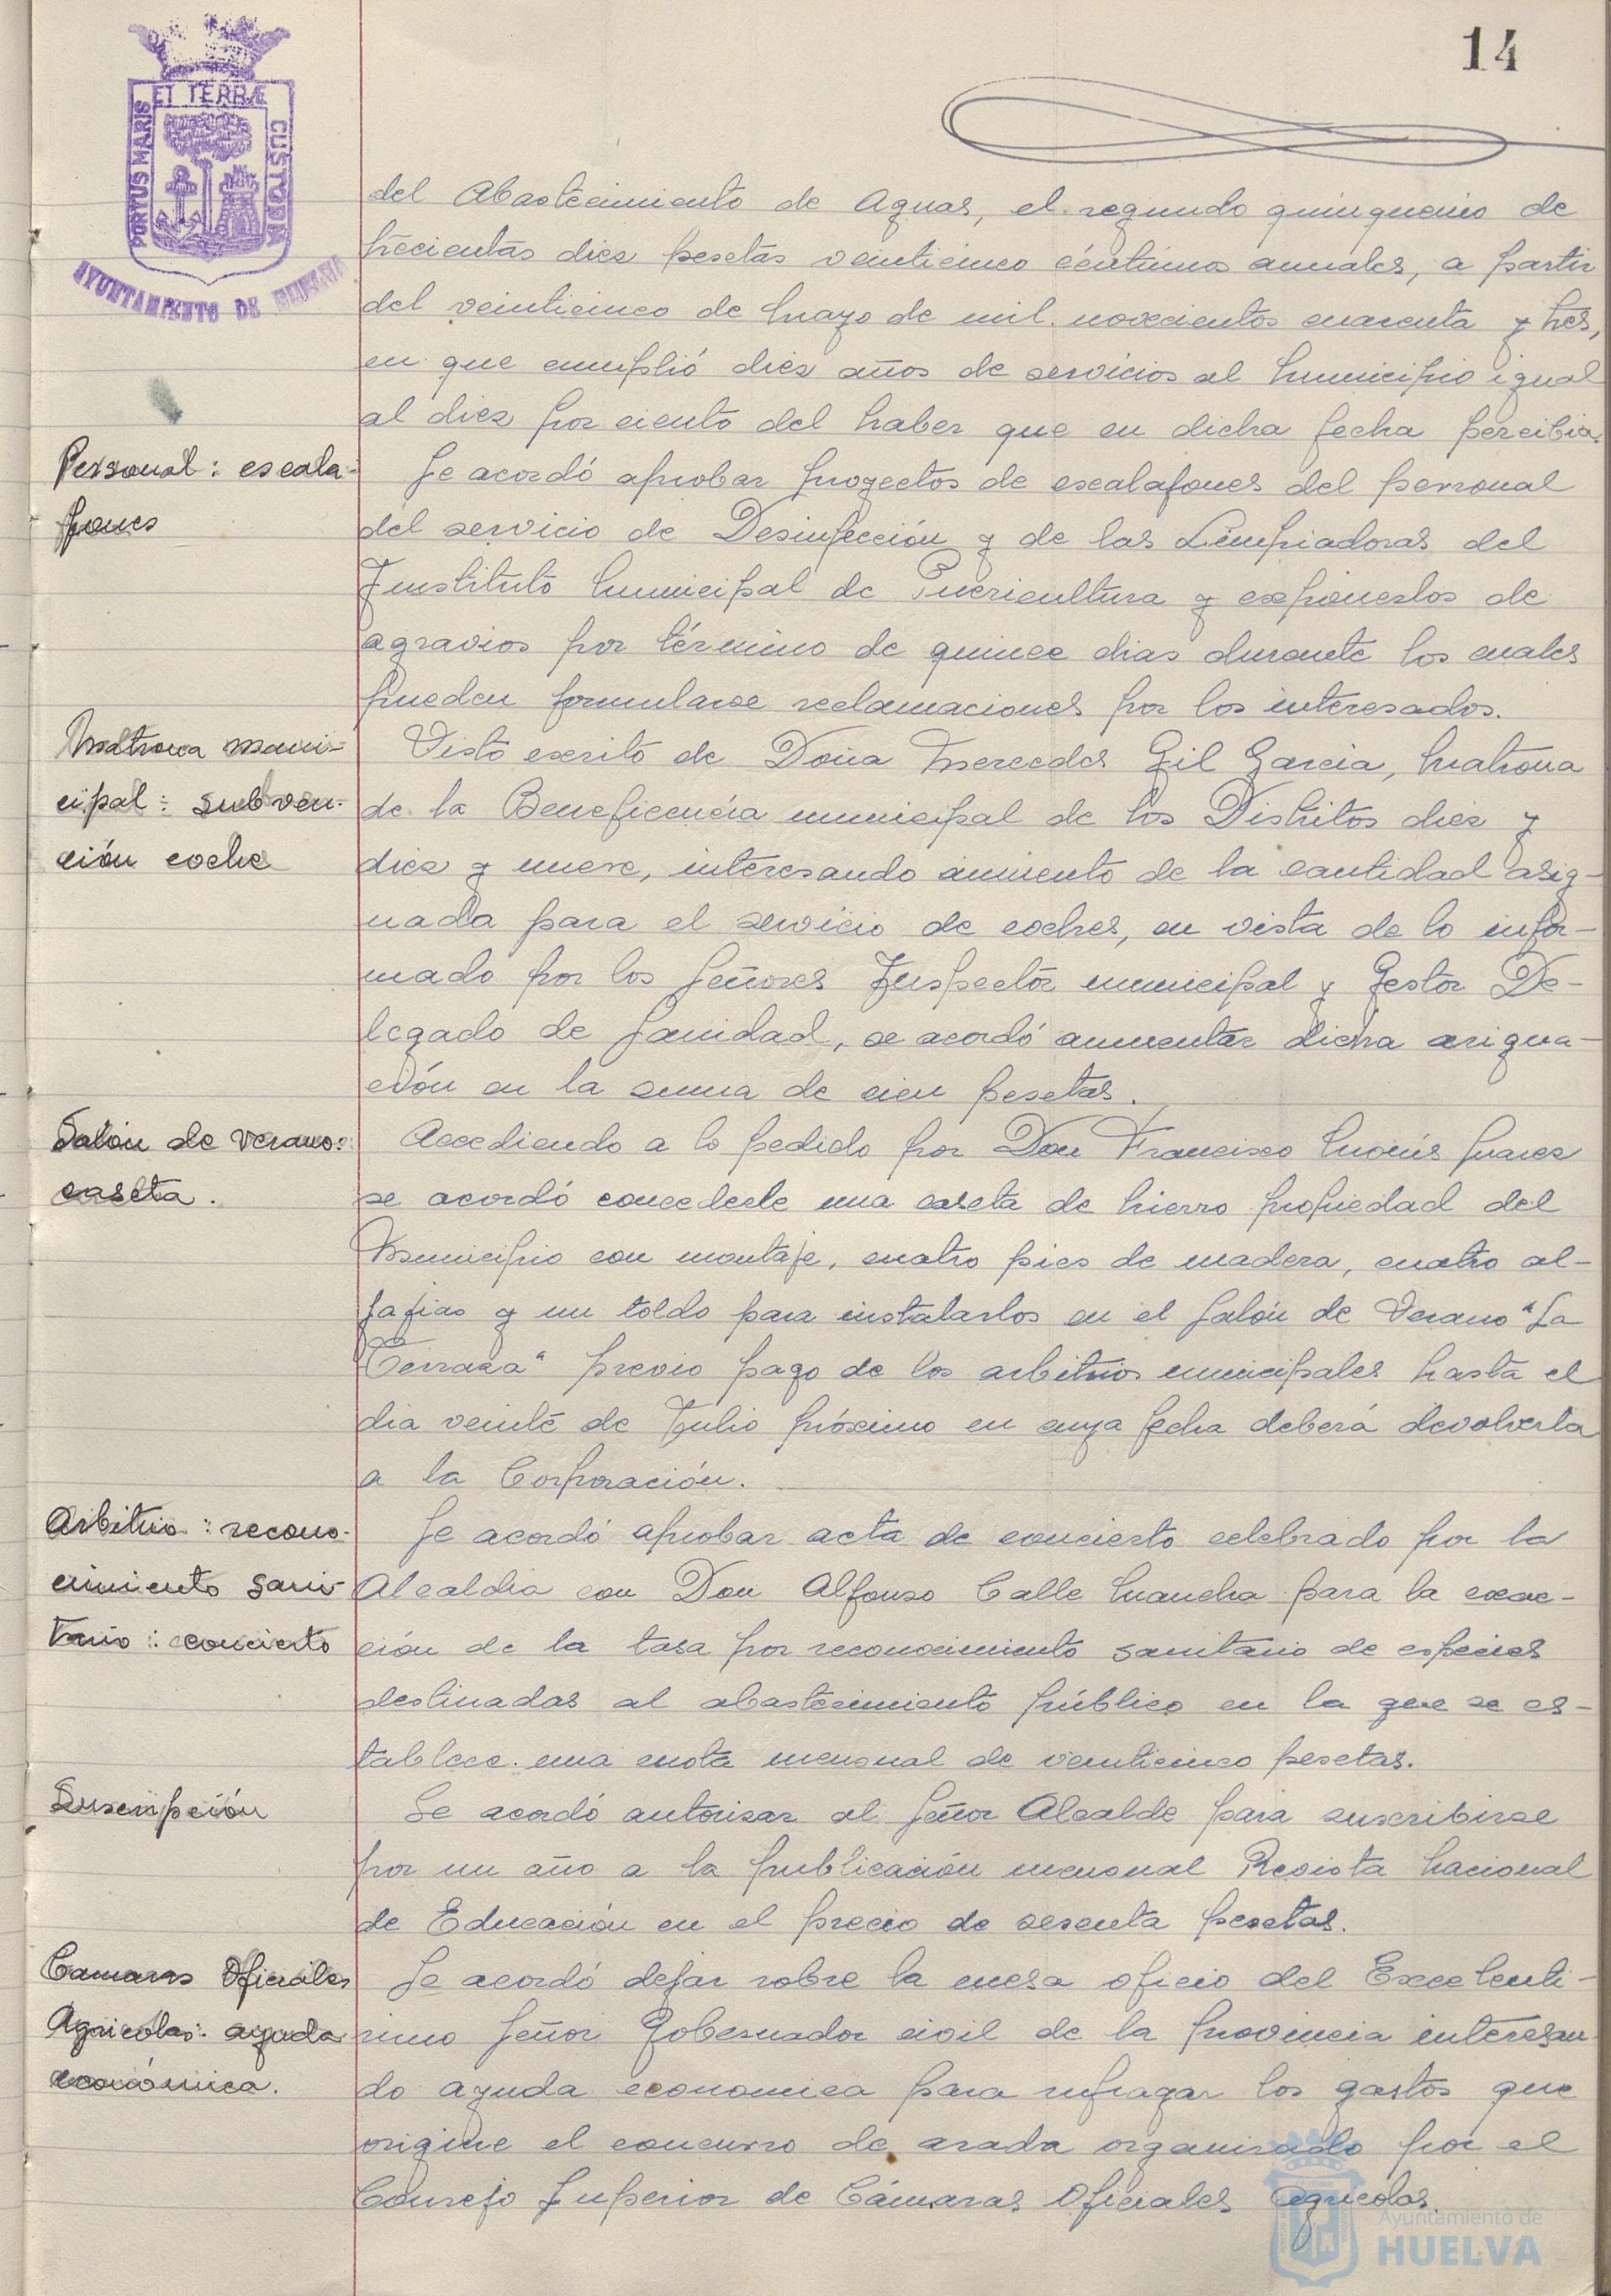 14
PORTUS MARIS ET TERRÆ CUSTODIA
AYUNTAMIENTO DE HUELVA
del Abastecimiento de Aguas, el segundo quinquenio de
trecientas diez pesetas veinticinco céntimos anuales, a partir
del veinticinco de Mayo de mil novecientos cuarenta y tres,
en que cumplió diez años de servicios al Municipio igual
al diez por ciento del haber que en dicha fecha percibia.
Personal: escala-
fones
Se acordó aprobar proyectos de escalafones del personal
del servicio de Desinfección y de las Limpiadoras del
Instituto Municipal de Puericultura y exponerlos de
agravios por término de quince dias durante los cuales
pueden formularse reclamaciones por los interesados.
Matrona muni-
cipal: subven-
ción coche
Visto escrito de Doña Mercedes Gil Garcia, Matrona
de la Beneficencia municipal de los Distritos diez y
diez y nueve, interesando aumento de la cantidad asig-
nada para el servicio de coches, en vista de lo infor-
mado por los Señores Inspector municipal y Gestor De-
legado de Sanidad, se acordó aumentar dicha asigna-
ción en la suma de cien pesetas.
Salón de verano:
caseta.
Accediendo a lo pedido por Don Francisco Monís Suarez
se acordó concederle una caseta de hierro propiedad del
Municipio con montaje, cuatro pies de madera, cuatro al-
fajias y un toldo para instalarlos en el Salón de Verano "La
Terraza" previo pago de los arbitrios municipales hasta el
dia veinte de Julio próximo en cuya fecha deberá devolverla
a la Corporación.
Arbitrio: recono-
cimiento sani-
tario: concierto
Se acordó aprobar acta de concierto celebrado por la
Alcaldia con Don Alfonso Calle Mancha para la exac-
ción de la tasa por reconocimiento sanitario de especies
destinadas al abastecimiento público en la que se es-
tablece una cuota mensual de veinticinco pesetas.
Suscripción
Se acordó autorizar al Señor Alcalde para suscribirse
por un año a la publicación mensual Revista Nacional
de Educación en el precio de sesenta pesetas.
Camaras Oficiales
Agricolas: ayuda
económica.
Se acordó dejar sobre la mesa oficio del Excelenti-
simo Señor Gobernador civil de la Provincia interesan-
do ayuda economica para sufragar los gastos que
origine el concurso de arada organizado por el
Consejo Superior de Cámaras Oficiales Agricolas.
Ayuntamiento de
HUELVA